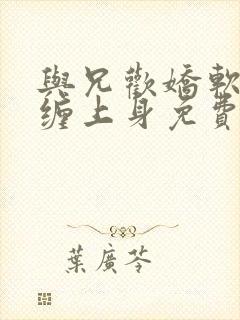 與兄歡嬌軟
纏上身免費
葉廣芩